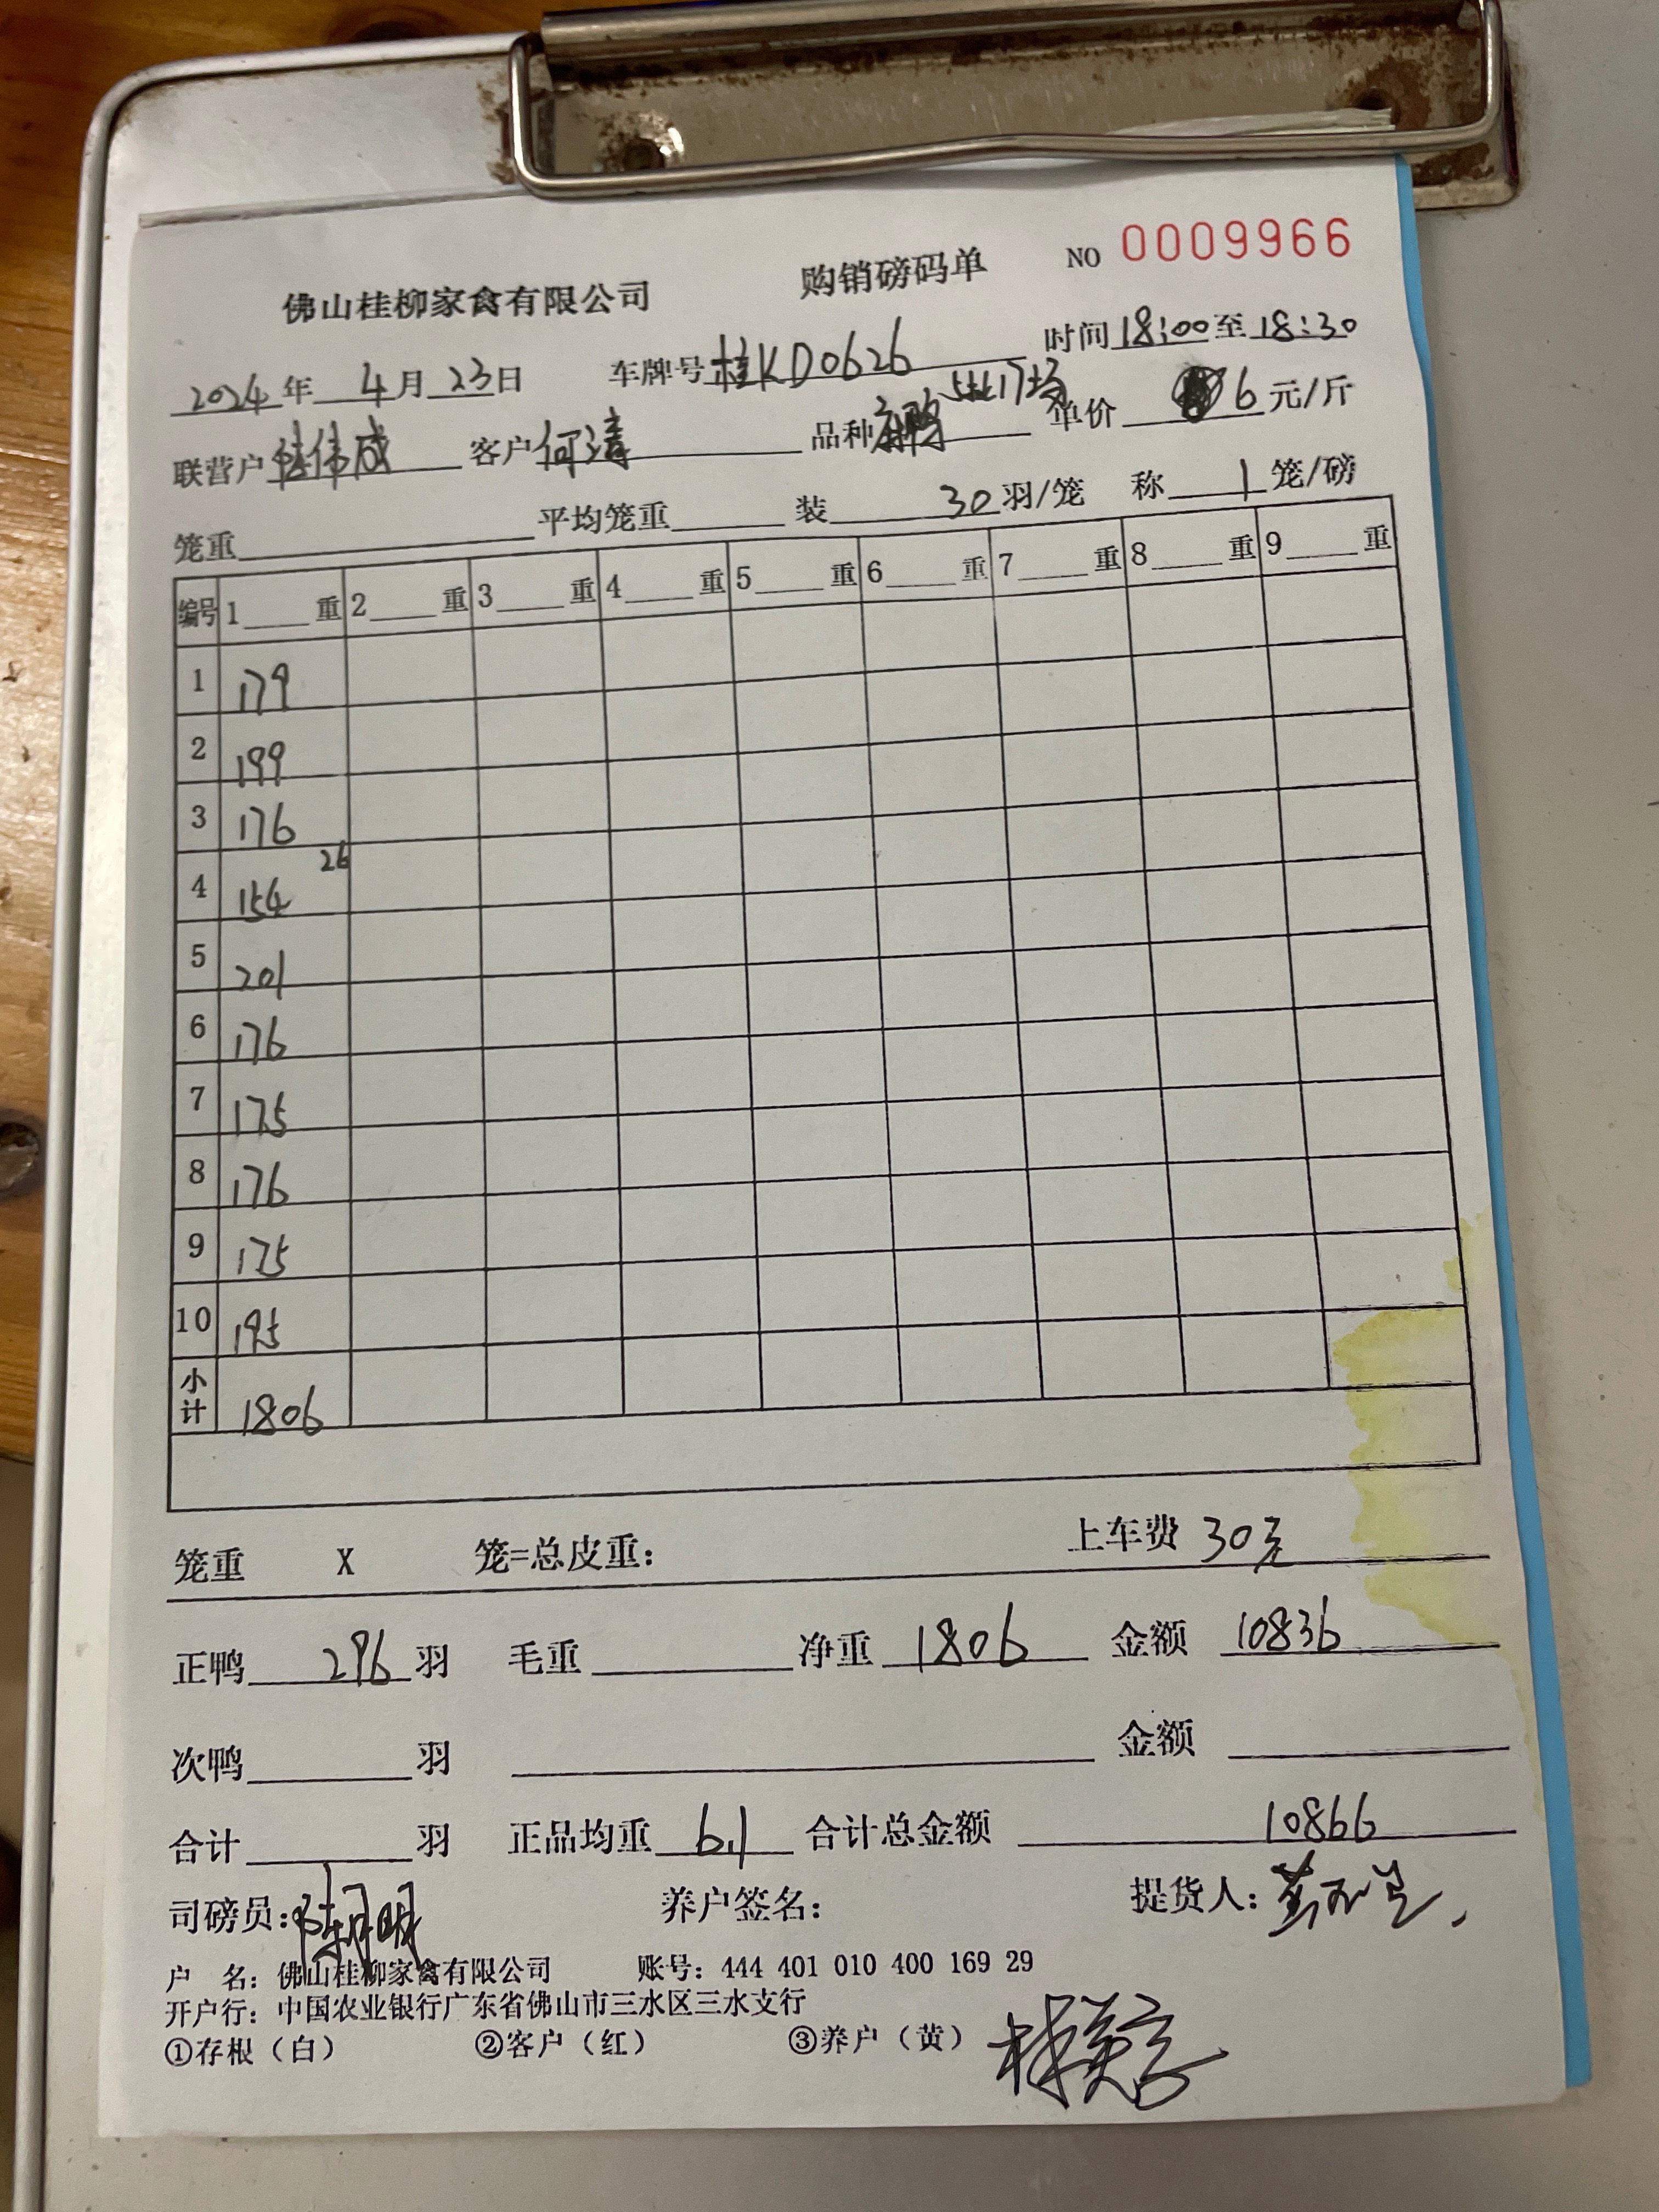 佛山桂柳家禽有限公司 购销磅码单 NO 0009966
2024年 4月 23日 车牌号 桂KD0626 时间 18:00 至 18:30
联营户 伟成 客户 何清 品种 单价 6 元/斤
笼重 平均笼重 装 30 羽/笼 称 1 笼/磅
编号 1 重 2 重 3 重 4 重 5 重 6 重 7 重 8 重 9 重
1 179
2 199
3 176
4 154 26
5 201
6 176
7 175
8 176
9 175
10 195
小计 1806
笼重 X 笼=总皮重: 上车费 30元
正鸭 296 羽 毛重 净重 1806 金额 10836
次鸭 羽 金额
合计 羽 正品均重 6.1 合计总金额 10866
司磅员: 养户签名: 提货人:
户 名: 佛山桂柳家禽有限公司 账号: 444 401 010 400 169 29
开户行: 中国农业银行广东省佛山市三水区三水支行
①存根（白） ②客户（红） ③养户（黄）